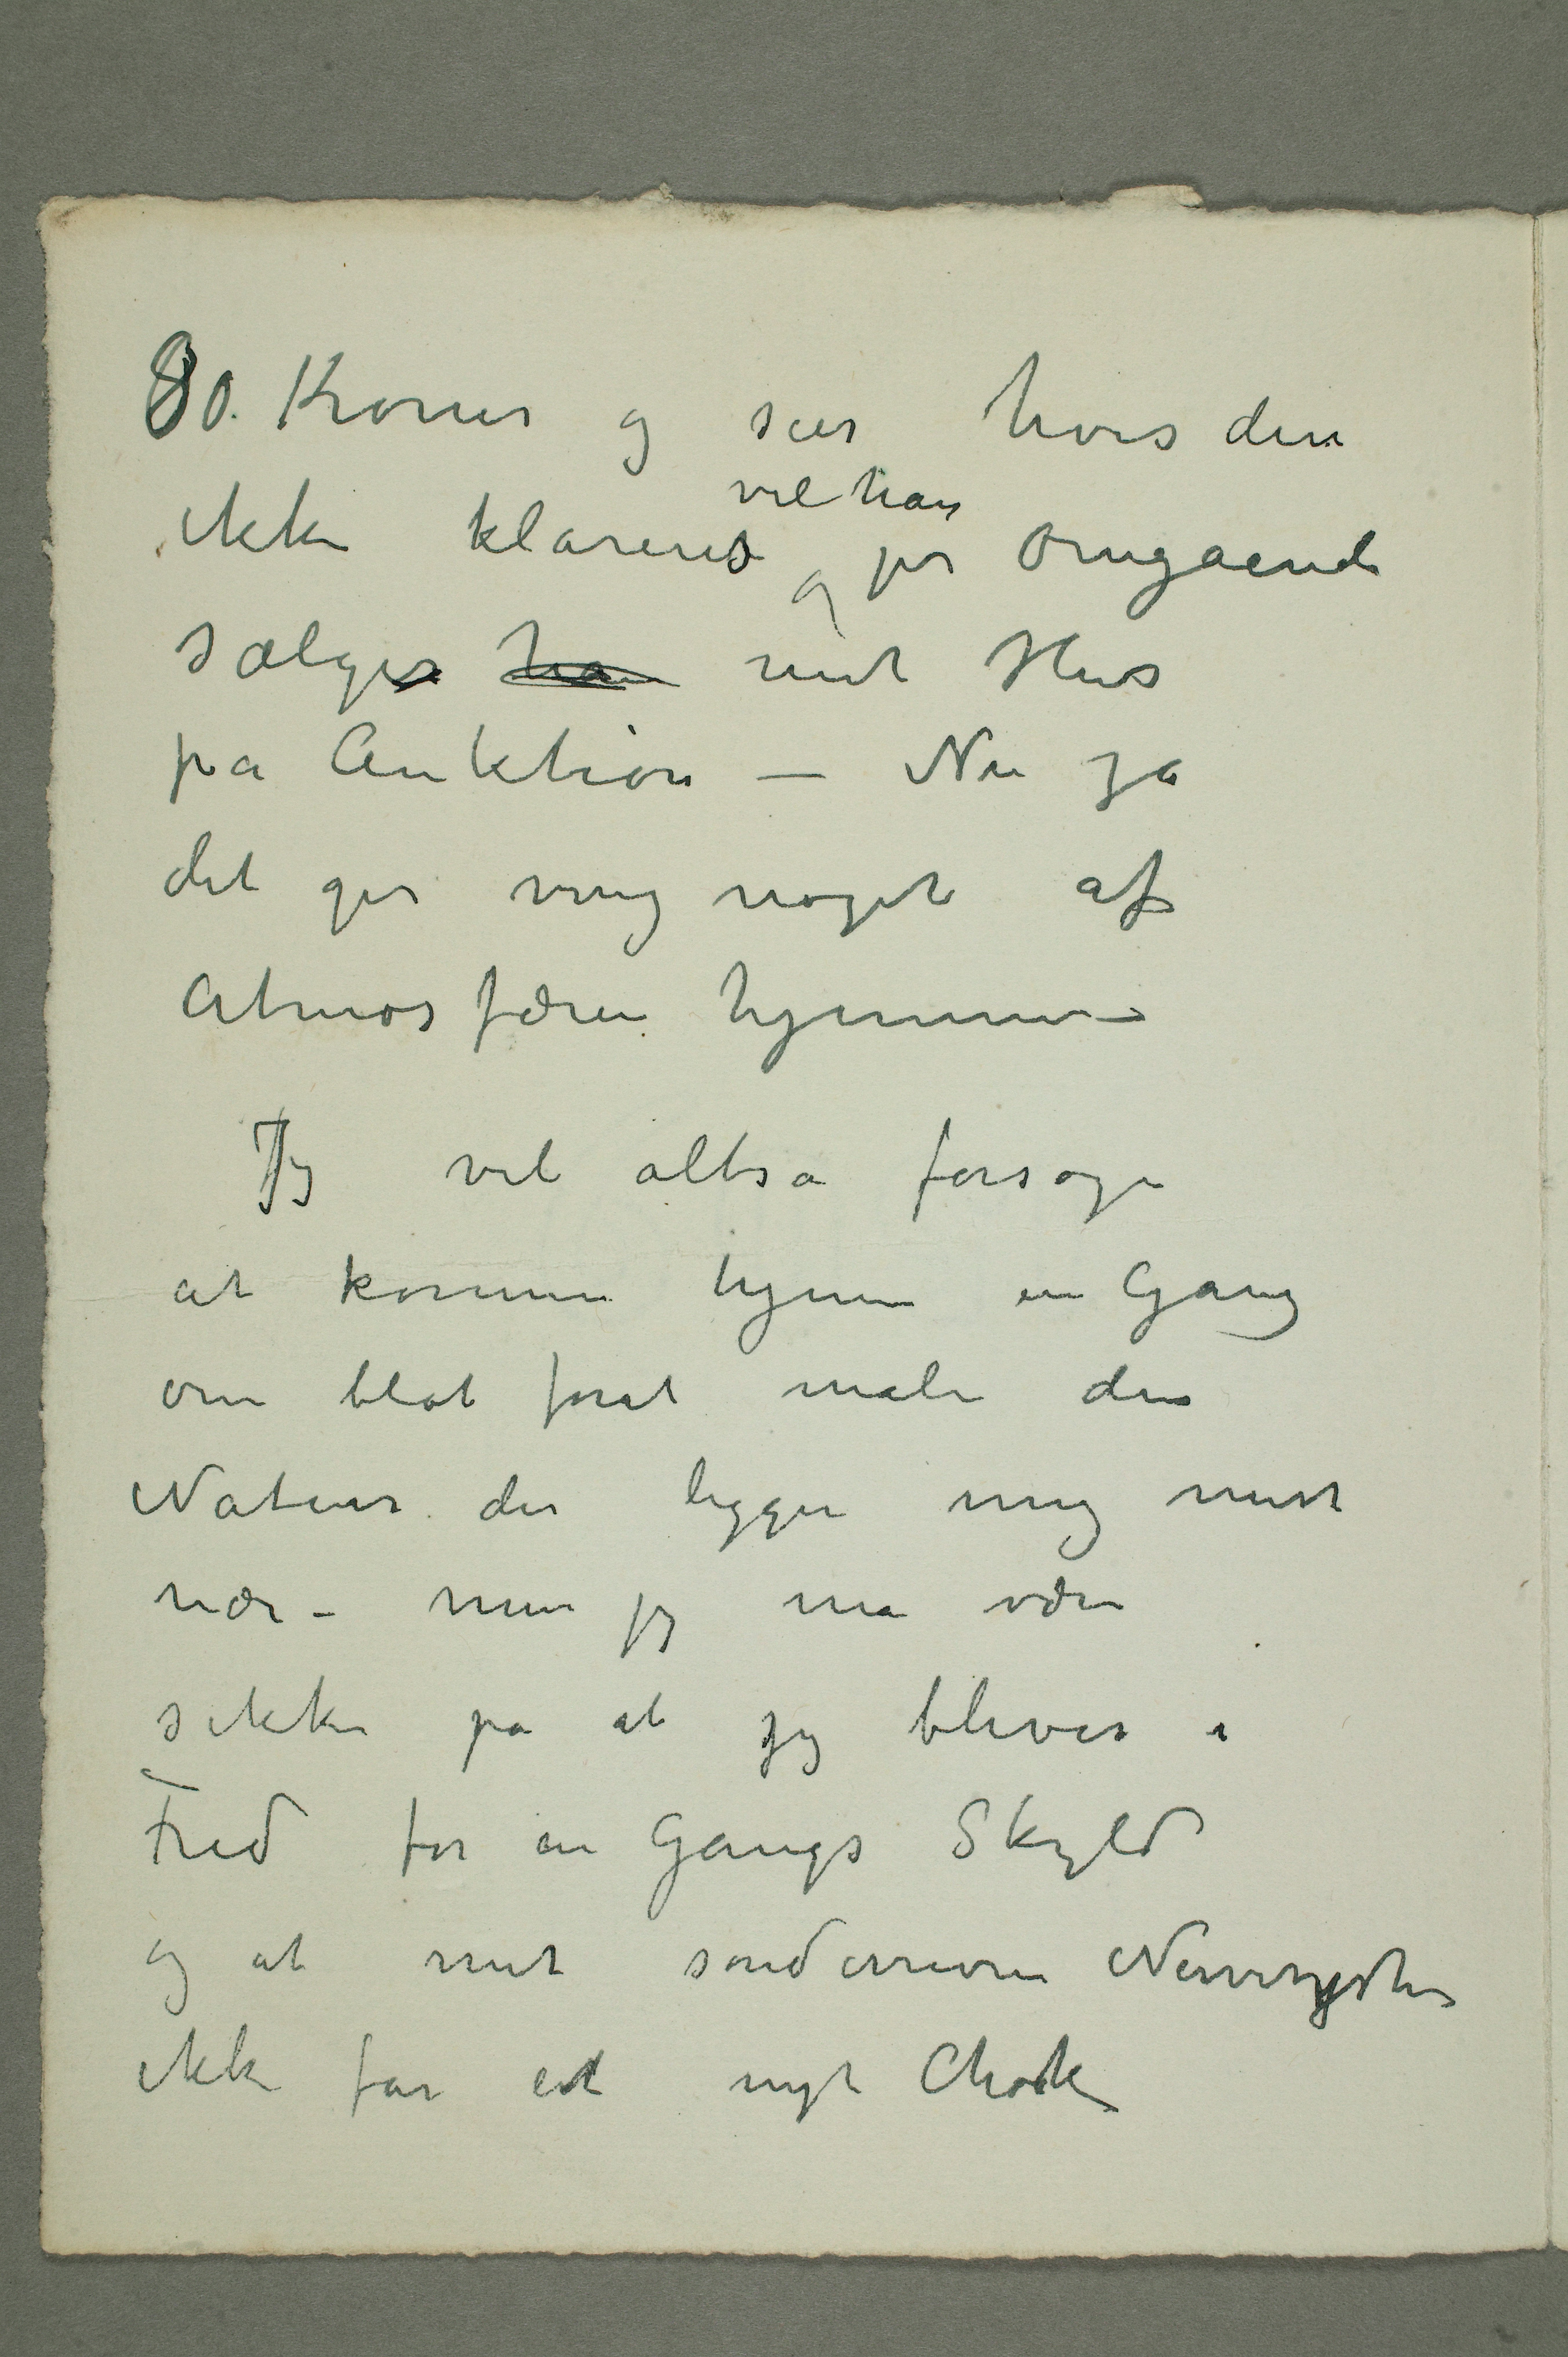 80. Kroner og sier hvis den
vil han
ikke klareres og per Omgaaende
sælger han mit Hus
pa Auktion – Nu ja
det ger mig noget af
Atmosfæren hjemme –
Jeg vil altsa forsøge
at komme hjem en Gang
om blot forat male den
Natur der ligger mig mest
nær – men jeg ma være
sikker på at jeg bliver i
Fred for en Gangs Skyld
og at mit sønderrevne Nervesystem
ikke far et nyt Chok